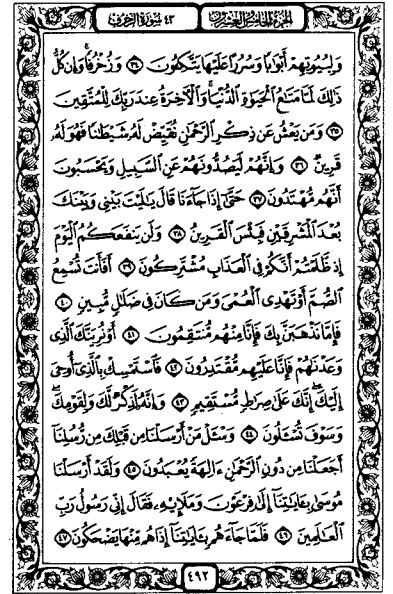 الجزء الخامس والعشرون ٤٣ سورة الزخرف
وَلِبُيُوتِهِمْ أَبْوَٰبًا وَسُرُرًا عَلَيْهَا يَتَّكِـُٔونَ ٣٤ وَزُخْرُفًا وَإِن كُلُّ
ذَٰلِكَ لَمَّا مَتَـٰعُ ٱلْحَيَوٰةِ ٱلدُّنْيَا وَٱلْـَٔاخِرَةُ عِندَ رَبِّكَ لِلْمُتَّقِينَ
٣٥ وَمَن يَعْشُ عَن ذِكْرِ ٱلرَّحْمَـٰنِ نُقَيِّضْ لَهُۥ شَيْطَـٰنًا فَهُوَ لَهُۥ
قَرِينٌ ٣٦ وَإِنَّهُمْ لَيَصُدُّونَهُمْ عَنِ ٱلسَّبِيلِ وَيَحْسَبُونَ
أَنَّهُم مُّهْتَدُونَ ٣٧ حَتَّىٰٓ إِذَا جَآءَنَا قَالَ يَـٰلَيْتَ بَيْنِى وَبَيْنَكَ
بُعْدَ ٱلْمَشْرِقَيْنِ فَبِئْسَ ٱلْقَرِينُ ٣٨ وَلَن يَنفَعَكُمُ ٱلْيَوْمَ
إِذ ظَّلَمْتُمْ أَنَّكُمْ فِى ٱلْعَذَابِ مُشْتَرِكُونَ ٣٩ أَفَأَنتَ تُسْمِعُ
ٱلصُّمَّ أَوْ تَهْدِى ٱلْعُمْىَ وَمَن كَانَ فِى ضَلَـٰلٍ مُّبِينٍ ٤٠
فَإِمَّا نَذْهَبَنَّ بِكَ فَإِنَّا مِنْهُم مُّنتَقِمُونَ ٤١ أَوْ نُرِيَنَّكَ ٱلَّذِى
وَعَدْنَـٰهُمْ فَإِنَّا عَلَيْهِم مُّقْتَدِرُونَ ٤٢ فَٱسْتَمْسِكْ بِٱلَّذِىٓ أُوحِىَ
إِلَيْكَ إِنَّكَ عَلَىٰ صِرَٰطٍ مُّسْتَقِيمٍ ٤٣ وَإِنَّهُۥ لَذِكْرٌ لَّكَ وَلِقَوْمِكَ
وَسَوْفَ تُسْـَٔلُونَ ٤٤ وَسْـَٔلْ مَنْ أَرْسَلْنَا مِن قَبْلِكَ مِن رُّسُلِنَآ
أَجَعَلْنَا مِن دُونِ ٱلرَّحْمَـٰنِ ءَالِهَةً يُعْبَدُونَ ٤٥ وَلَقَدْ أَرْسَلْنَا
مُوسَىٰ بِـَٔايَـٰتِنَآ إِلَىٰ فِرْعَوْنَ وَمَلَإِي۟هِۦ فَقَالَ إِنِّى رَسُولُ رَبِّ
ٱلْعَـٰلَمِينَ ٤٦ فَلَمَّا جَآءَهُم بِـَٔايَـٰتِنَآ إِذَا هُم مِّنْهَا يَضْحَكُونَ ٤٧
٤٩٢